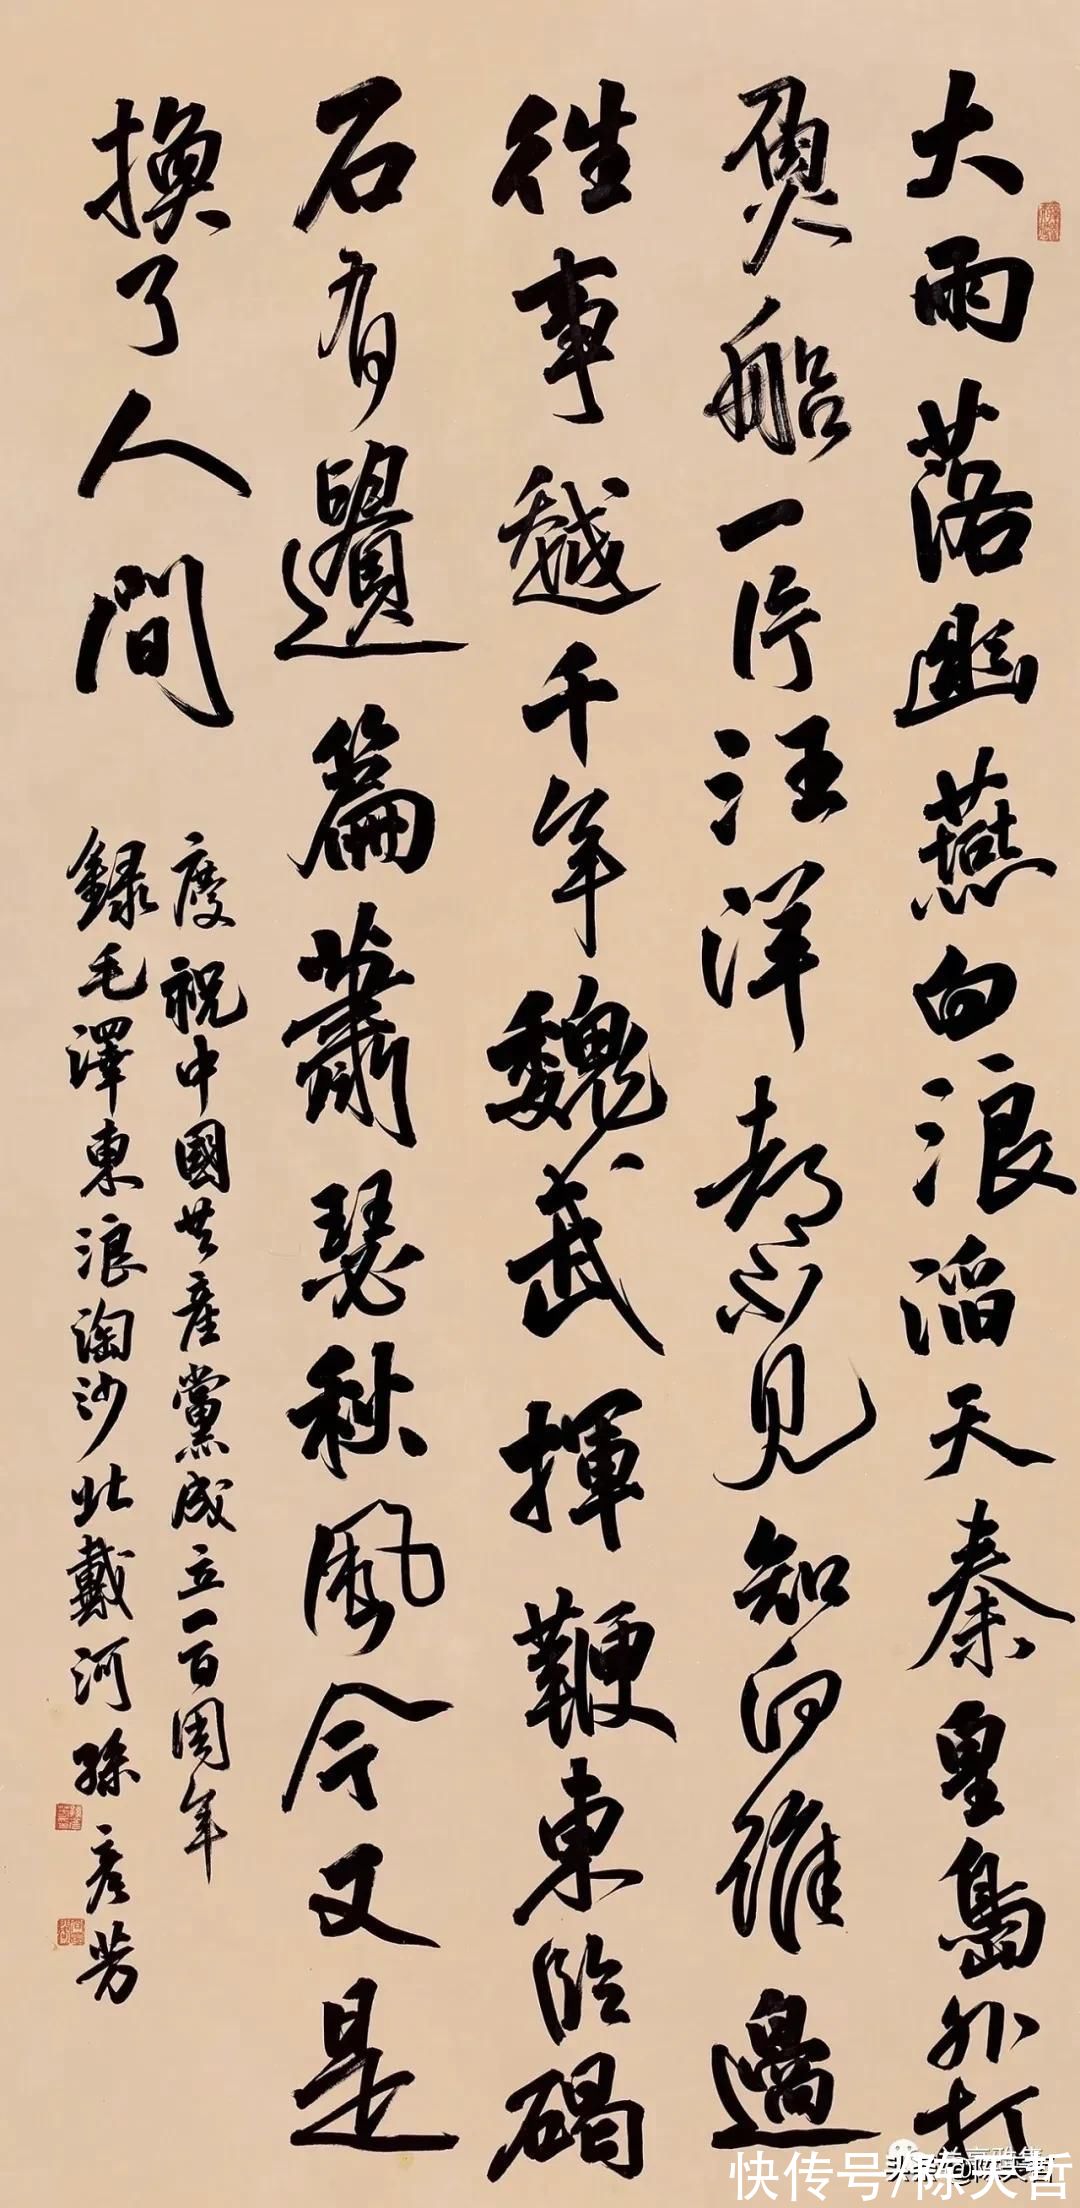 大雨落幽燕白浪滔天秦皇島外打
魚船一片汪洋都不見知向誰邊
往事越千年魏武揮鞭東臨碣
石有遺篇蕭瑟秋風今又是
換了人間
慶祝中國共產黨成立一百周年
錄毛澤東浪淘沙北戴河孫彥芳
快传号/陈天哲